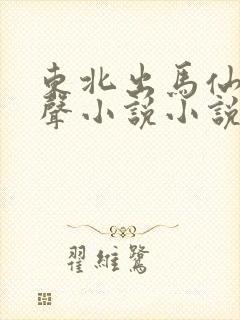 東北出馬仙
聲小説小説
翟維鷺